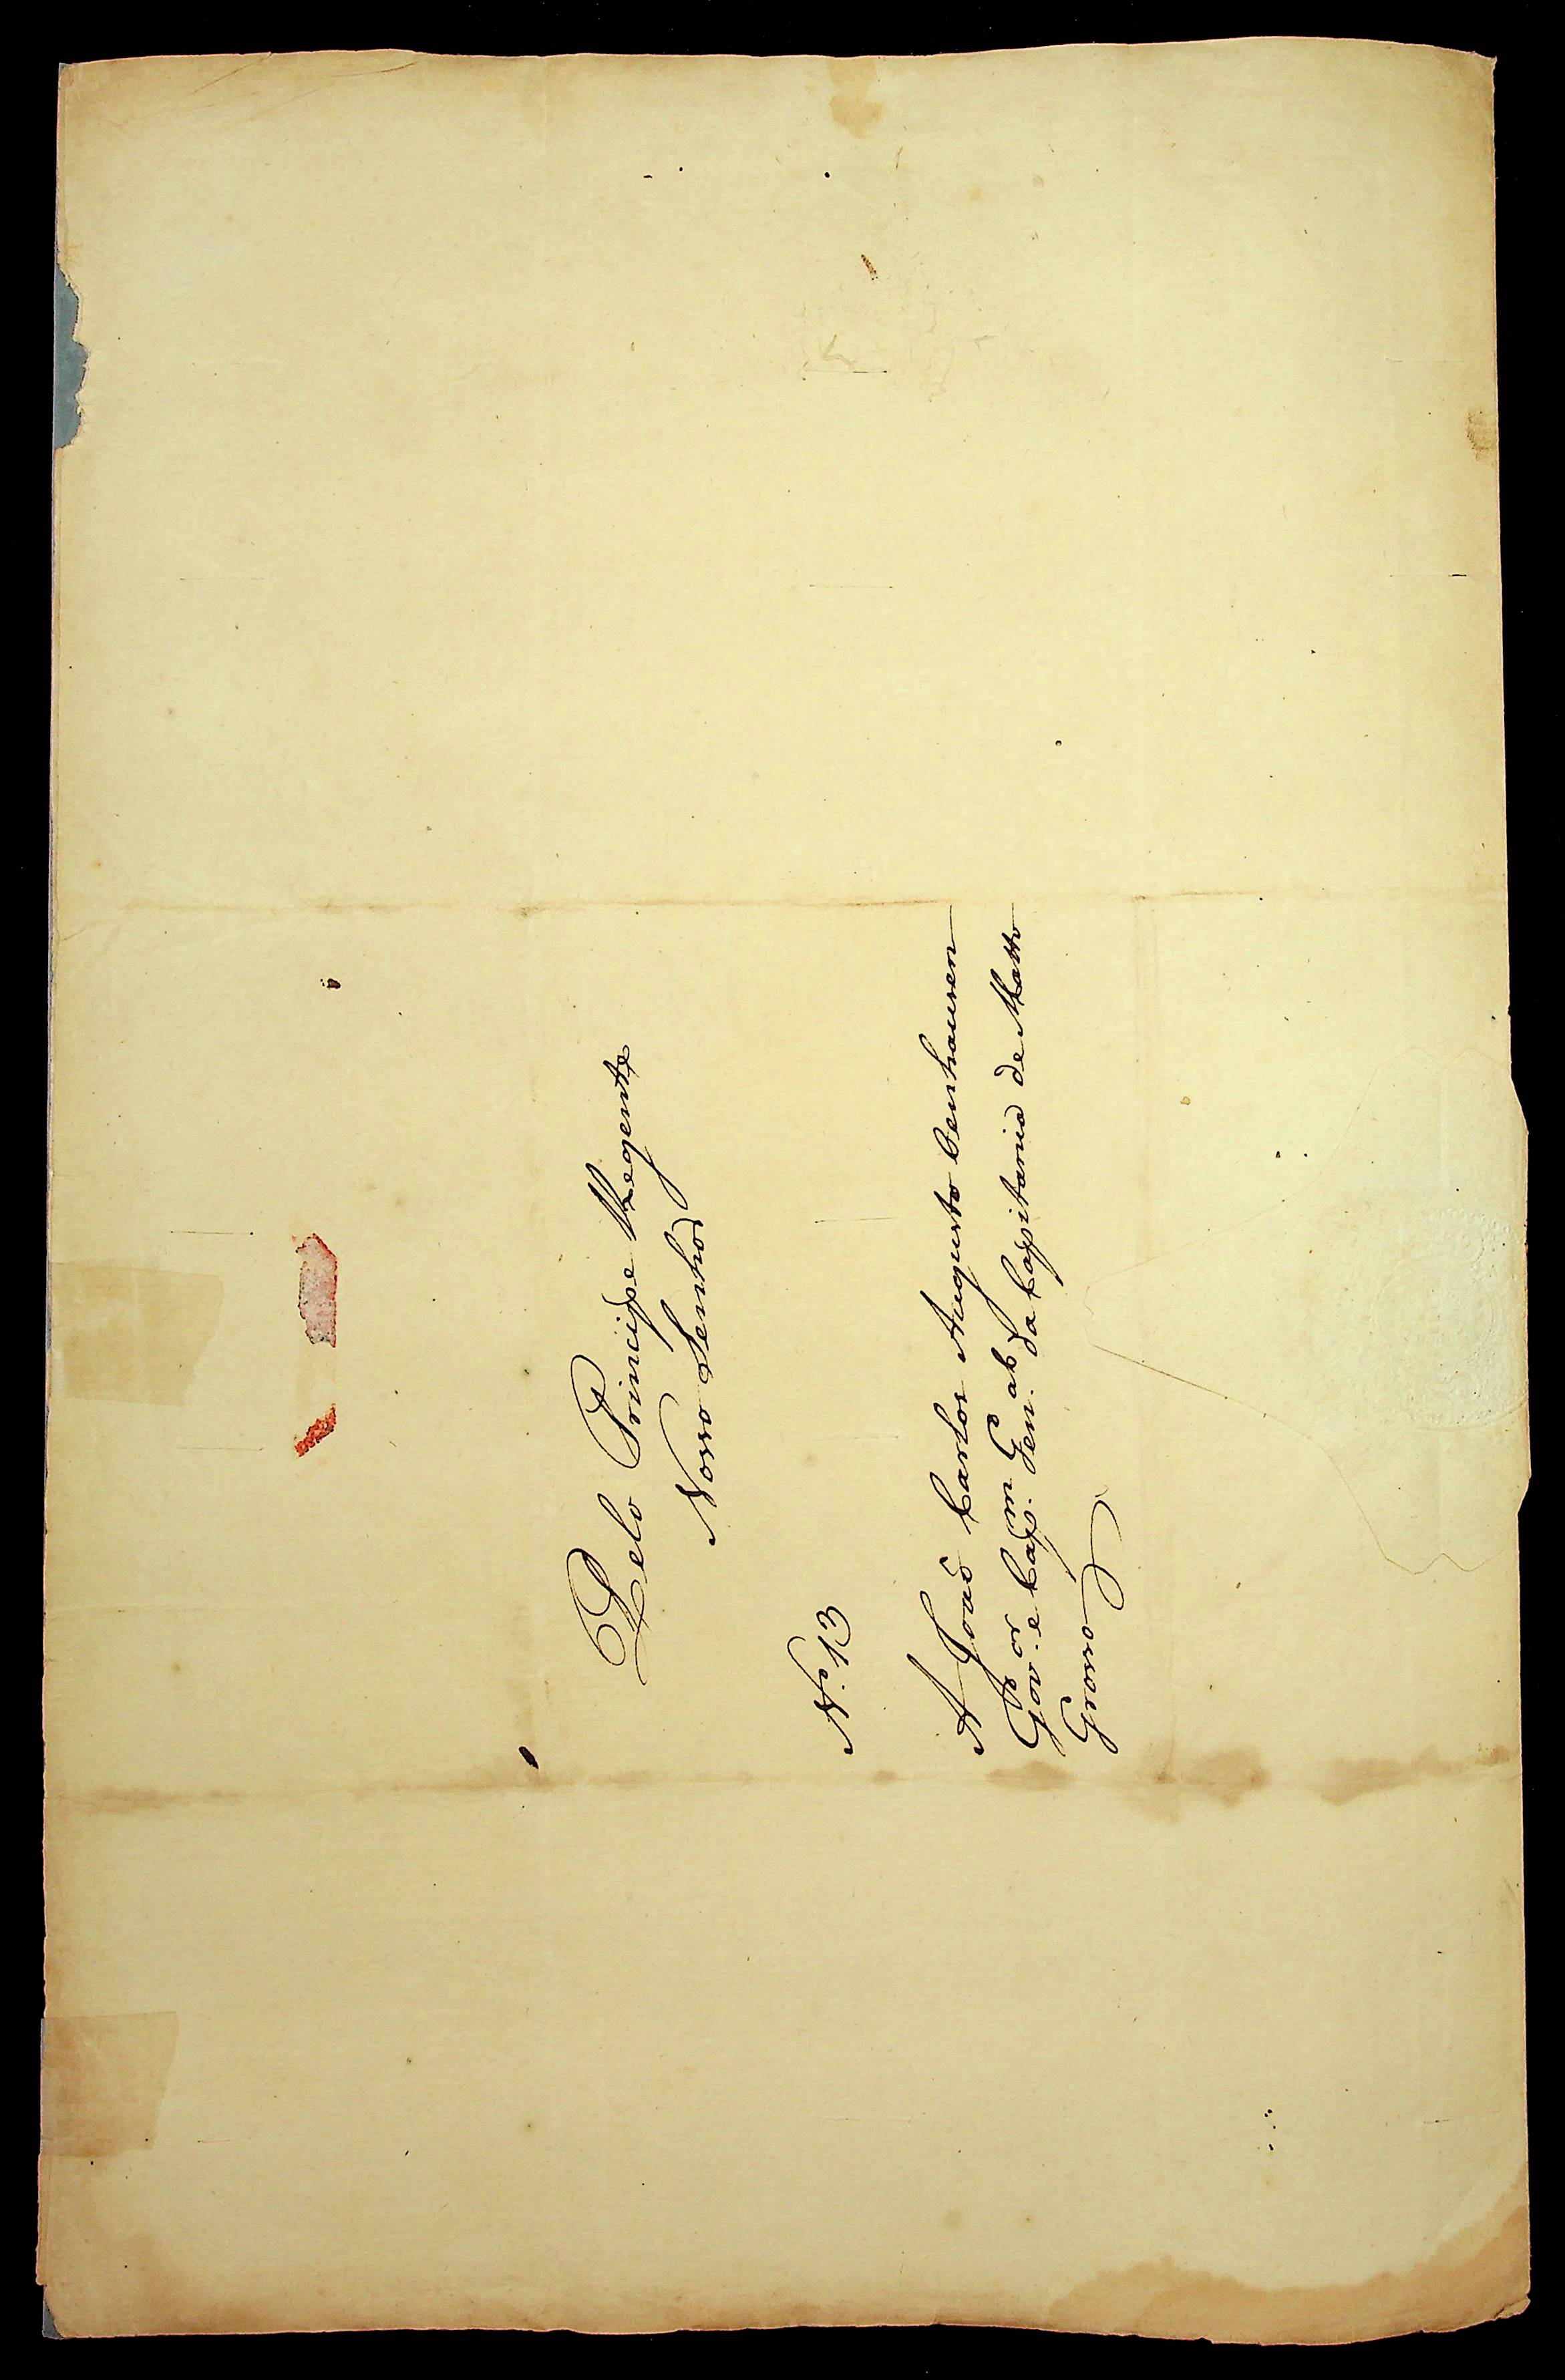 Pelo Principe Regente
Nosso Senhor
Nº. 13
A João Carlos Augusto Oeinhausen
Gov.or e Cap.m Gen.al da Capitania de Matto
Grosso